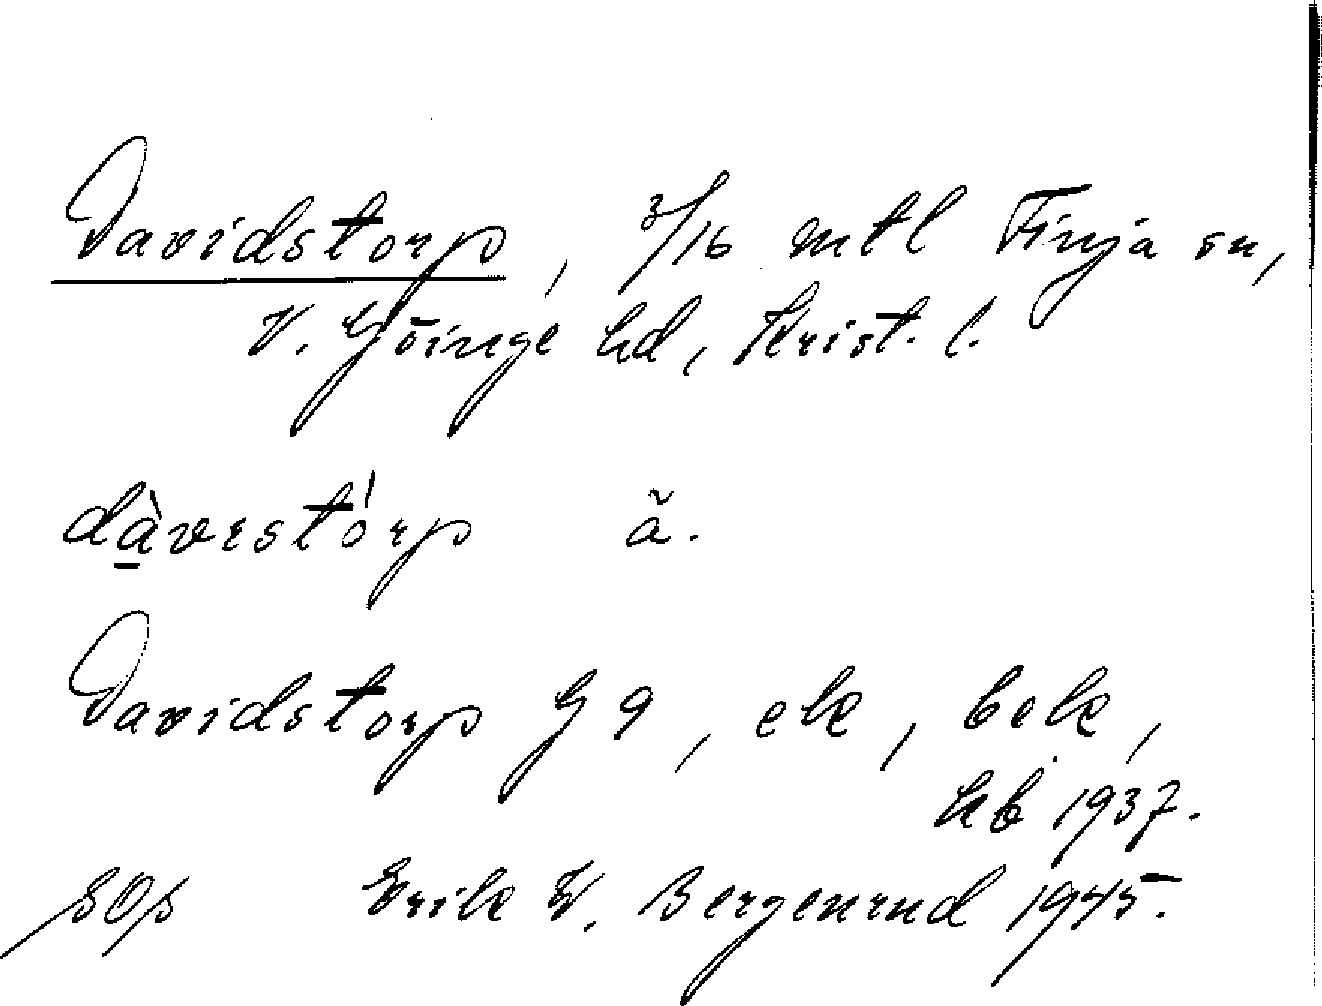 Davidstorp, 3/16 mtl Finja sn,
V. Göinge hd, Krist. l.
dàvɪstórp ă.
Davidstorp G 9, ek, bek,
hb 1937.
SOS Erik W. Bergenrud 1945.